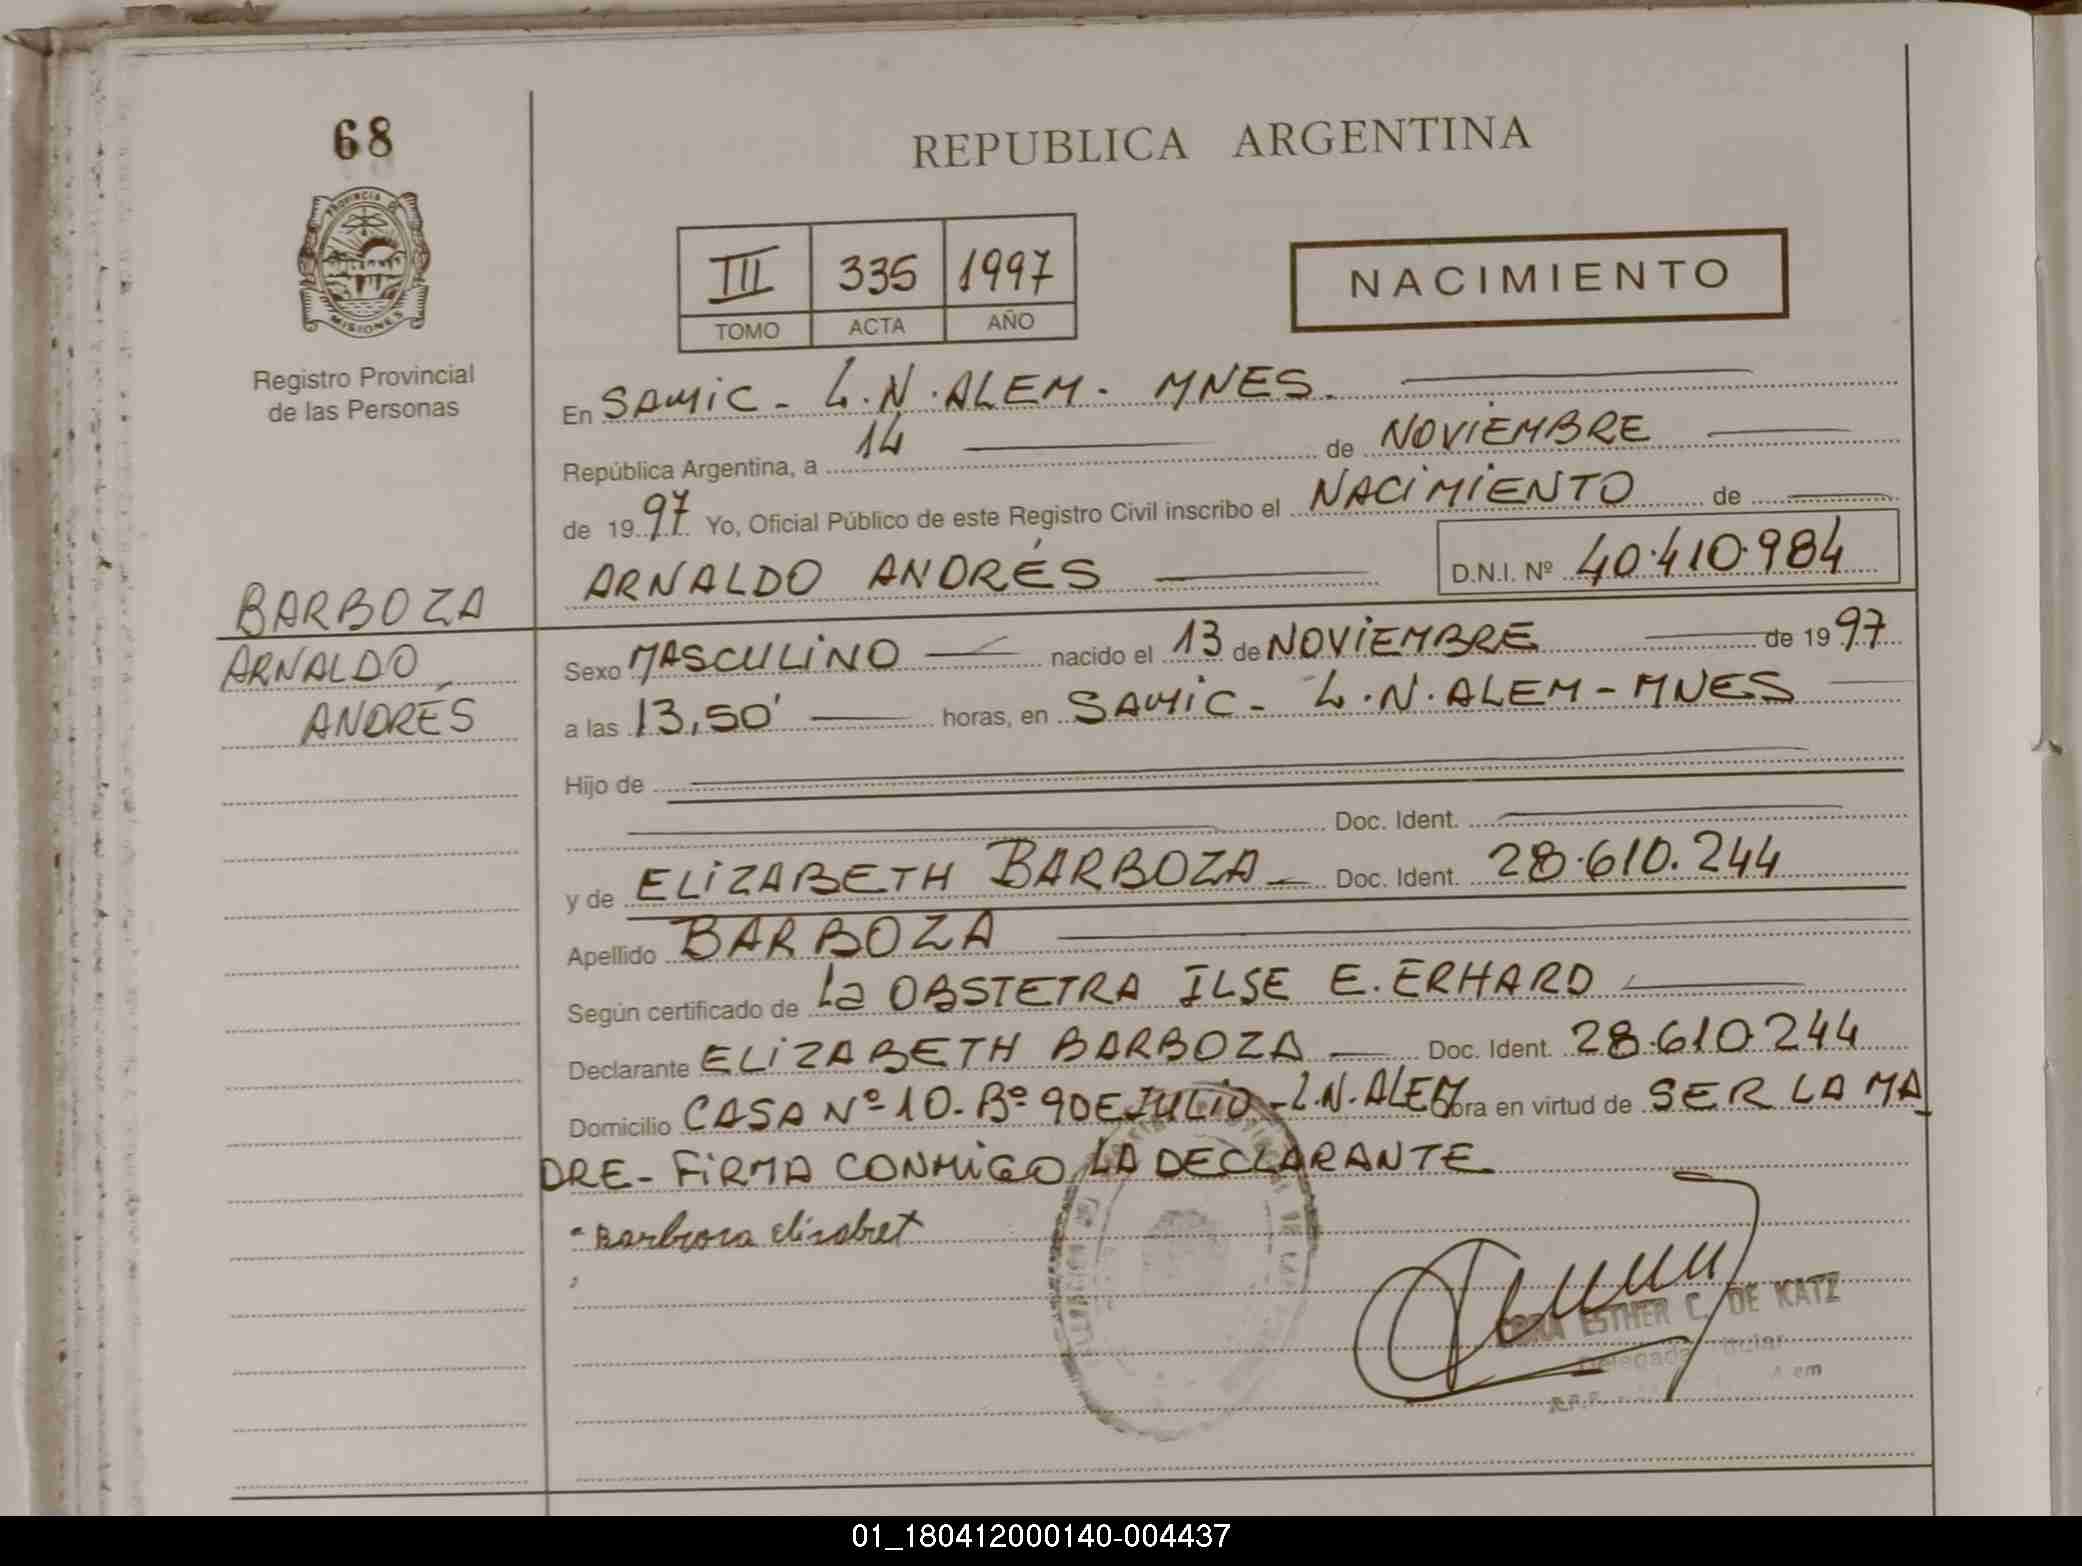 68
REPUBLICA ARGENTINA
PROVINCIA DE
MISIONES
III 335 1997
TOMO ACTA AÑO
NACIMIENTO
Registro Provincial
de las Personas
En SAMIC - L.N. ALEM - MNES.
República Argentina, a 14 de NOVIEMBRE
de 1997 Yo, Oficial Público de este Registro Civil inscribo el NACIMIENTO de
ARNALDO ANDRÉS D.N.I. Nº 40.410.984
BARBOZA
ARNALDO
ANDRÉS
Sexo MASCULINO nacido el 13 de NOVIEMBRE de 1997
a las 13,50' horas, en SAMIC - L.N. ALEM - MNES
Hijo de
Doc. Ident.
y de ELIZABETH BARBOZA Doc. Ident. 28.610.244
Apellido BARBOZA
Según certificado de La OBSTETRA ILSE E. ERHARD
Declarante ELIZABETH BARBOZA Doc. Ident. 28.610.244
Domicilio CASA Nº 10. Bº 9 DE JULIO - L.N. ALEM obra en virtud de SER LA MA
DRE - FIRMA CONMIGO LA DECLARANTE
Barboza elisabet
ESTHER C. DE KATZ
Delegada Titular
01_180412000140-004437